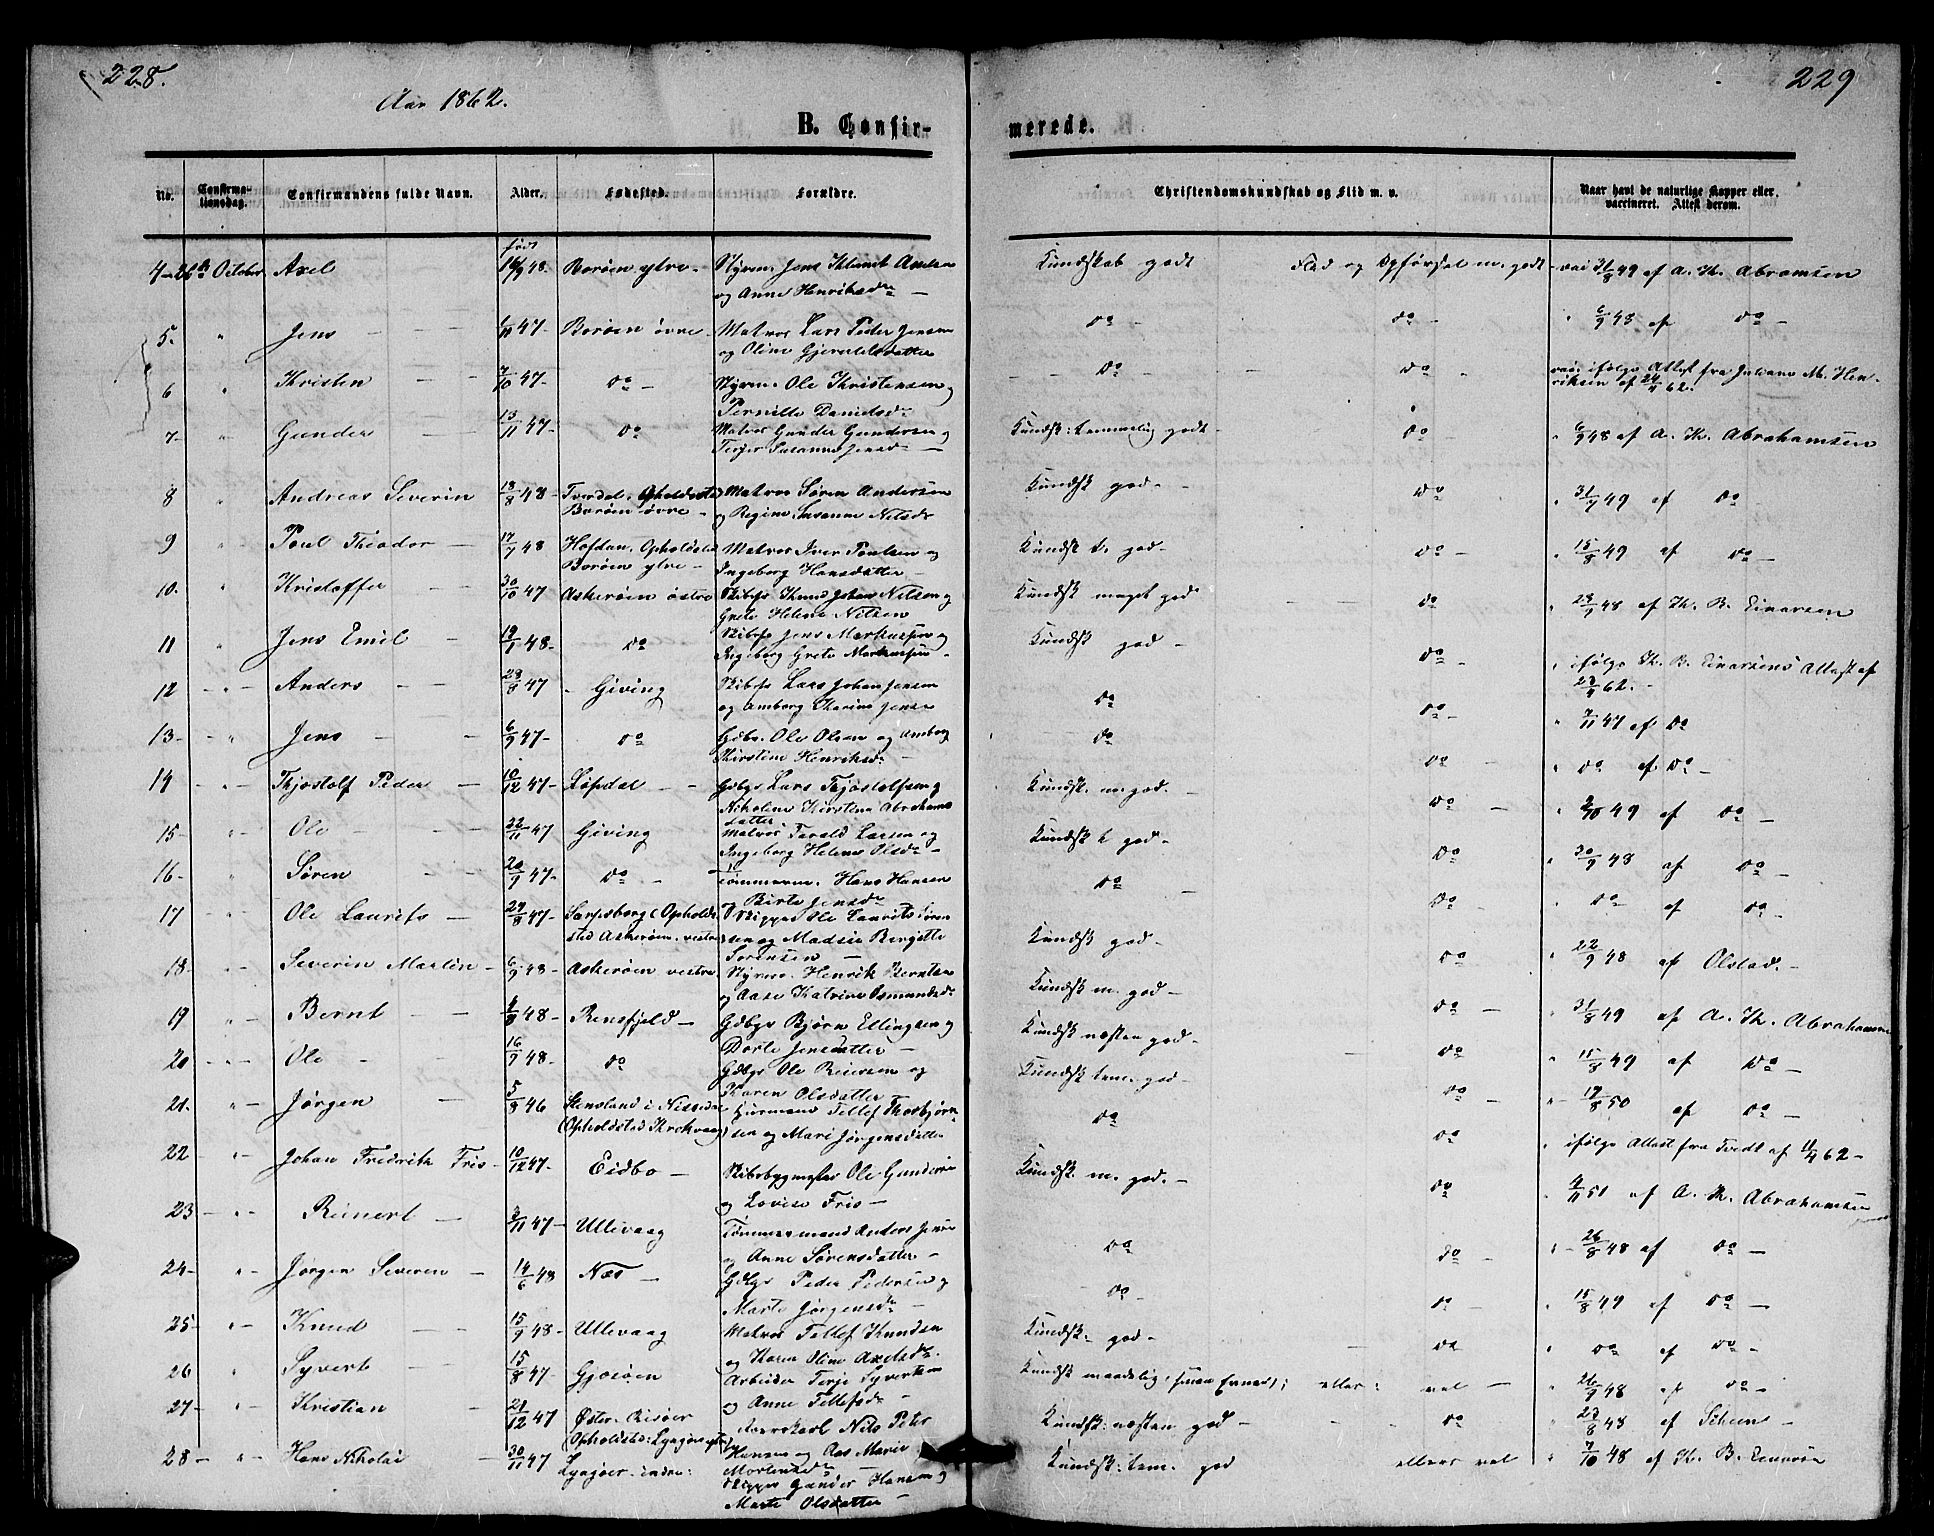 228.
229
Aar 1862.
B. Confir-
merede.
No.
Confirma-
tionsdag.
Confirmandens fulde Navn.
Alder.
Fødested.
Forældre.
Christendomskundskab og Flid m. v.
Naar havt de naturlige Kopper eller
vaccineret. Attest derom.
født
4 - 26de October Axel 48. Borøen ytre - Styrm. Jens Andersen Kundskab godt Flid og Opførsel m. godt - vac 31/8 49 af A. Th. Abramsen
og Anne Henriksdr -
5. " Jens - 47 - Borøen øvre - Matros Lars Peder Jensen do - do - " 6/9 48 af do -
og Oline Gjeruldsdatter
6 " Kristen - 7/10 47 - do - Styrm. Ole Kristensen og do - do - vac. ifølge Attest fra Juliane M. Hen-
riksen af 62.
Pernille Danielsdr
7 - " Gunder - 15/11 47 - do - Matros Gunder Gundersen og Kundsk: temmelig godt - do - " 6/9 48 af A. Th. Abrahamsen
Terjer Susanne Jensdr -
8 " Andreas Severin 18/8 48 - Tverdal. Opholdssted Matros Søren Andersen Kundsk god - do " 31/7 49 af do -
Borøen øvre - og Regine Susanne Nilsdr
9 " Poul Theodor - 17/7 48 Hofdan. Opholdssted Matros Iver Poulsen og Kundsk t. god - do - " 15/8 49 af do -
Borøen ytre - Ingeborg Hansdatter -
10. " Kristoffer - 30/10 47 Askerøen østre Skibsfr Knud Johan Nilsen og Kundsk meget god do " 48 af Th. B. Einarsen
Grete Helene Nilsen
11 " Jens Emil - 19/7 48 - do Skibsfr Jens Markussen og Kundsk god - do - " ifølge Th. B. Einarsens Attest af
Ingeborg Grete Markussen - 62. -
12 - " - Anders - 23/8 47 - Giving Skibsfr Lars Johan Jensen do do - " 7/11 47 af do
og Amborg Karine Jensen
13 - " Jens - 6/9 47 - do Gdbr. Ole Olsen og Amborg do do - " do af do -
Kirstine Henriksdr -
14 - " Thjostolf Peder - 10/12 47 - Løvdal - Gdbgr Lars Tjøstolfsen og Kundsk. m. god. - do - " 49 af do -
Nikoline Kirstine Abrahams
datter
15 - " Ole - 22/11 47 Giving Matros Tarald Larsen og Kundsk t god - do - " 30/9 48 af do -
Ingeborg Helene Olsdr -
16 - " Søren - 20/9 47 - do - Tømmerm. Hans Hansen do - do - " do af do -
og Birte Jensdr
17 " Ole Laurits - 29/8 47 - Sarpsborg (Ophold- Skipper Ole Laurits Søren Kundsk god - do " 22/9 48 af Olstad. -
sted Askerøen. vestre) sen og Madsie Bergitte
Sørensen -
18 - " Severin Martin - 6/9 48 - Askerøen vestre Styrm. Henrik Berntsen Kundsk m. god - do - " 31/8 49 af A. Th. Abrahamsen
og Aase Katrine Osmundsdr
19 " Bernt - 48 - Rensfjeld - Gdbgr Bjørn Ellingsen og Kundsk næsten god - do - " 15/8 49 af do -
Dorte Jensdatter -
20 " Ole - 16/9 48 - do Gdbgr Ole Reiersen og Kundsk tem. god - do - " 17/8 50 af do -
Karen Olsdatter
21. " Jørgen - 5/8 46 Stensland i Nissedal Huusmand Tellef Thorbjørn- do - do " ifølge Attest fra Tvedt af 62 -
(Opholdsted Krokvaag) sen og Mari Jørgensdatter
22 - " Johan Fredrik Fris - 10/12 47 - Eidbo - Skibsbygmester Ole Gundersen Kundsk m. god. - do - " 51 af A. Th. Abrahamsen
og Lovise Fris -
23 - " Reinert - 3/11 47 - Ullevaag Tømmermand Anders Jensen do do - " - 26/8 48 af do -
og Anne Sørensdatter -
24 - " - Jørgen Severin - 14/6 48 Næs - Gdbgr Peder Pedersen og do - do - " 15/8 49 af do -
Marte Jørgensdr -
25 - " - Knud - 15/9 48 - Ullevaag Matros Tellef Knudsen Kundsk. god - do " do af do -
og Karen Oline Axelsdr.
26 " Syvert - 15/8 47 - Gjøsøen Arbeider Terje Syvertsen Kundsk maadelig, ellers: vel - " 26/9 48 af do -
og Anne Tellefsdr -
27 - " - Kristian - 21/12 47 Øster-Risøer Nils Peter Kundsk: næsten god - do - " 23/8 48 af Scheen -
(Opholdsted: Lyngøer ytre) Hansen og Aas Marie
Mortensdr -
28 - " - Hans Nikolai - 30/11 47 Lyngøer indre: Skipper Gunder Hansen og Kundsk: tem. god ellers vel " 7/10 48 af Th. B. Einarsen
Marte Olsdatter -